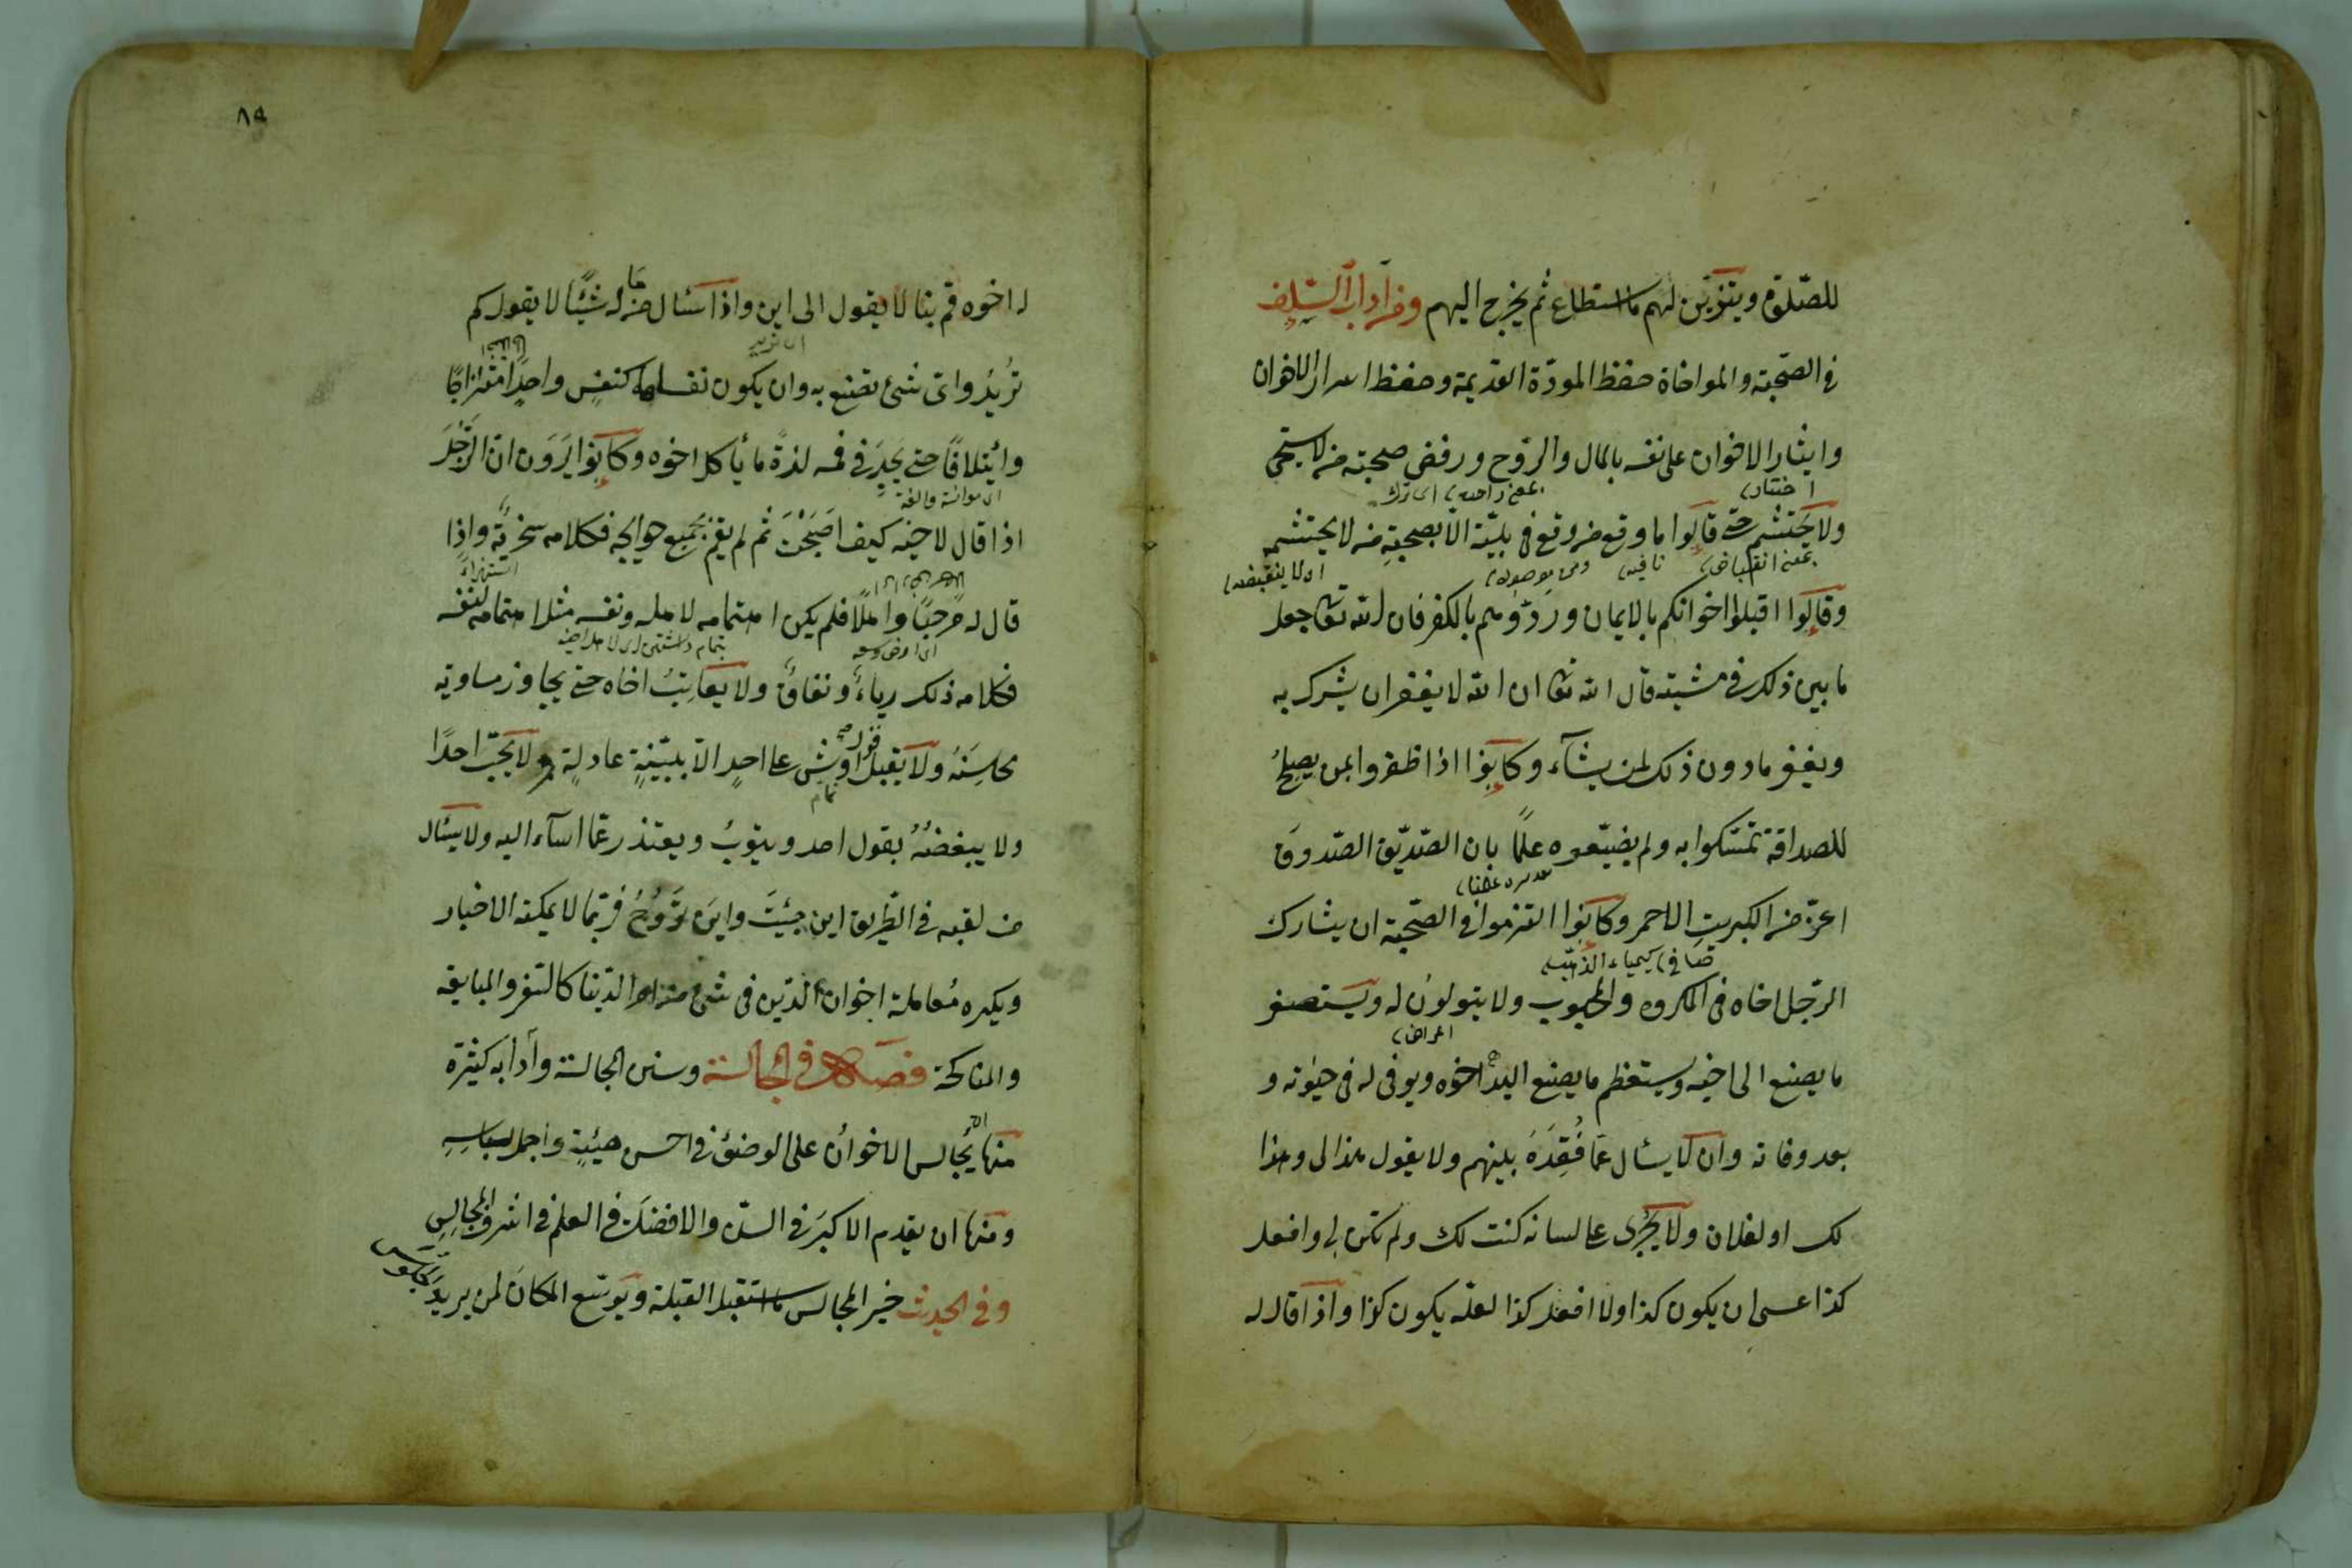 للصّلوة ويتزيّن لهم ما استطاع ثم يخرج اليهم ومن آداب السّلف
فى الصّحبة والمواخاة حفظ المودّة القديمة وحفظ اسرار الاخوان
وايثار الاخوان على نفسه بالمال والروح ورفض صحبة من لا يستحيى
اختيار
ولا يحتشم حتى قالوا ما وقع من وقع فى بليّة الّا بصحبته من لا يحتشمه
بمعنى انقباض نافيه من موصوله اى لا ينقبضه
وقالوا اقبلوا اخوانكم بالايمان وردّوهم بالكفر فان الله تعالى جعل
ما بين ذلك فى مشيته قال الله تعالى ان الله لا يغفر ان يشرك به
ويغفر ما دون ذلك لمن يشآء وكانوا اذا ظفروا بمن يصلح
للصداقة تمسّكوا به ولم يضيّعوه علمًا بان الصّديق الصّدوق
اعزّ من الكبريت الاحمر وكانوا التزموا فى الصّحبة ان يشارك
الرّجل اخاه فى المكروه والمحبوب ولا يتولون له ويستصغر
اعراض
ما يصنع الى اخيه ويستعظم ما يصنع اليه اخوه ويوفى له فى حيوته و
بعد وفاته وان لا يسئال عمّا فقده بينهم ولا يقول هذا لى وهذا
لك او لفلان ولا يجرى على لسانه كنت لك ولم تكن لى وافعل
كذا عسى ان يكون كذا ولا افعل كذا لعلّه يكون كذا واذا قال له
٨٩
له اخوه قم بنا لا يقول الى اين واذا سئال من ماله شيئًا لا يقول كم
تريد واىّ شئ تصنع به وان يكون نفساهما كنفس واحدٍ امتزاجًا
وائتلافًا حتى يجد فى فمه لذة ما يأكل اخوه وكانوا يرون ان الرّجل
اى موانسة والفة
اذا قال لاخيه كيف اصبحت ثم لم يقم بجميع حوايجه فكلامه سخرية واذا
استهزاء
قال له مرحبًا واهلًا فلم يكن اهتمامه لاهله ونفسه مثل اهتمامه لنفسه
فكلامه ذلك رياء ونفاق ولا يعاتب اخاه حتى يجاوز مساويه
محاسنه ولا يقبل قول واشٍ على احدٍ الّا ببيّنةٍ عادلةٍ ولا يحبّ احدًا
ولا يبغضه بقول احد ويتوب ويعتذر عمّا اسآء اليه ولا يسئال
من لقيه فى الطّريق اين جئت واين تروح فربّما لا يمكنه الاخبار
ويكره معاملة اخوان الدّين فى شئ من امر الدّنيا كالسّفر والمبايعة
والمناكحة فصل فى المجالسة وسنن المجالسة وآدابه كثيرة
منها ان يجالس الاخوان على الوضوء فى احسن هيئةٍ واجمل لباسه
ومنها ان يقدم الاكبر فى السنّ والافضل فى العلم فى اشرف المجالس
وفى الحديث خير المجالس ما استقبل القبلة ويوسّع المكان لمن يريد